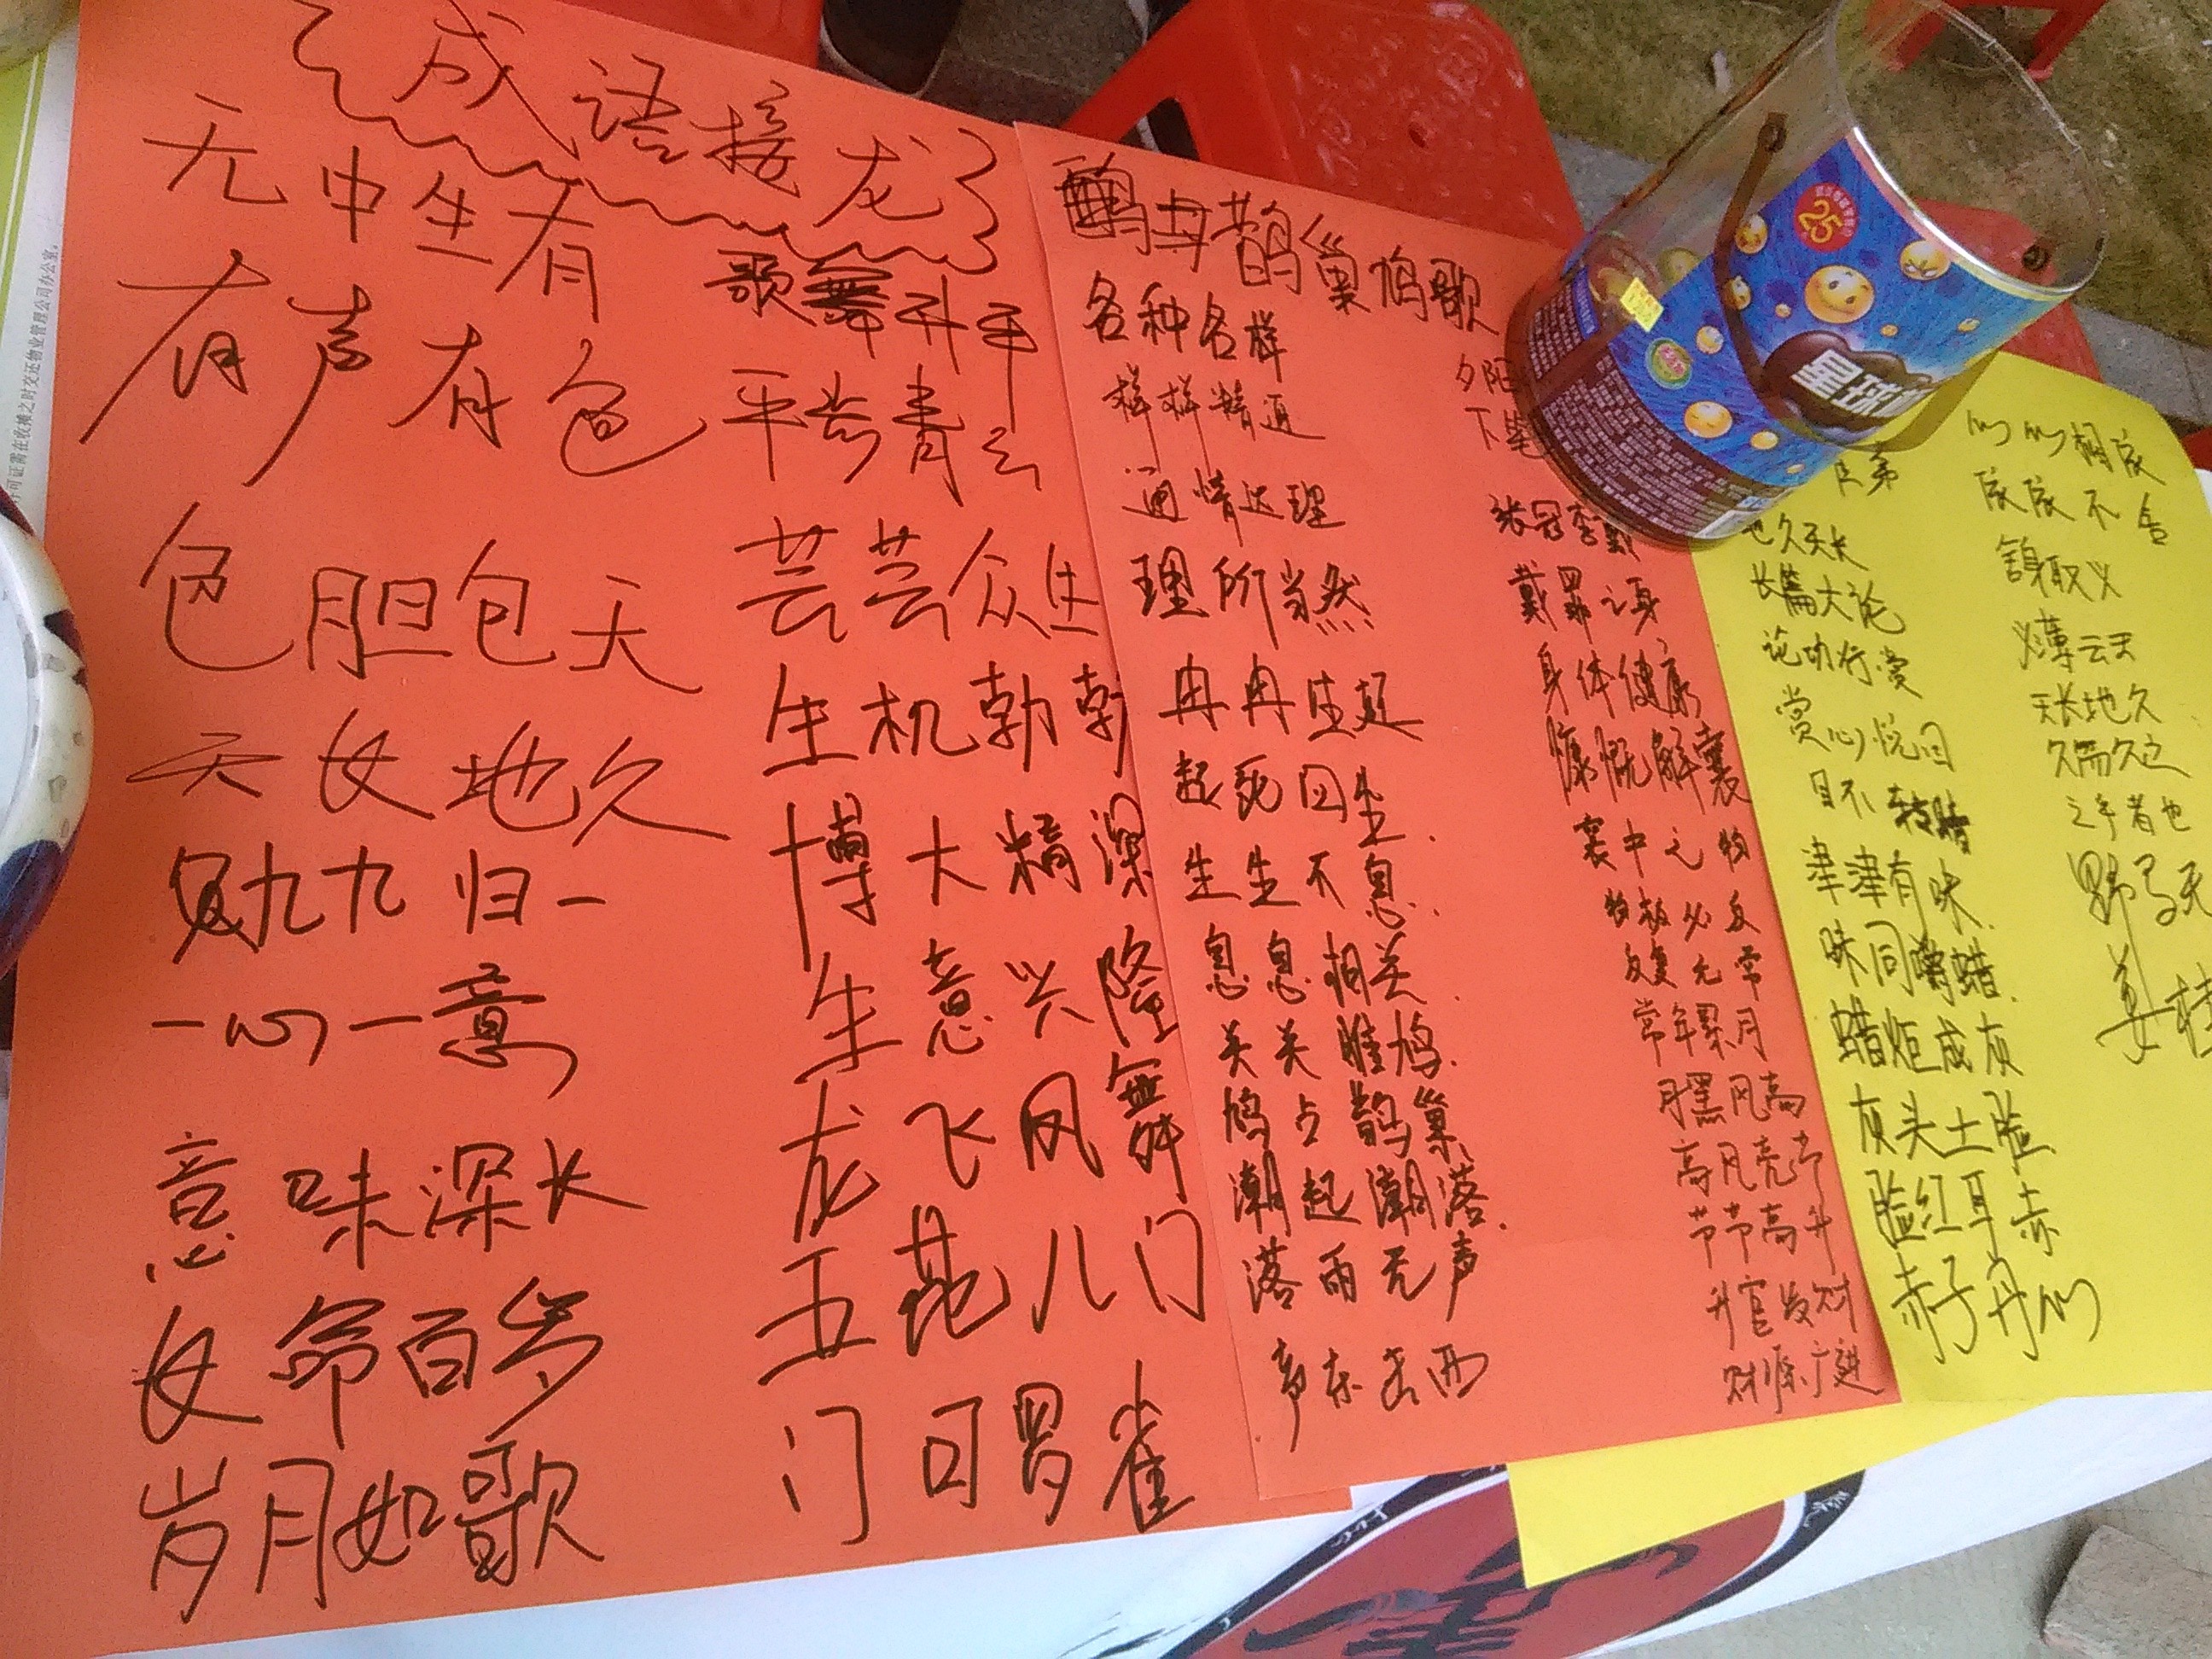 成语接龙
无中生有
有声有色
色胆包天
天长地久
九九归一
一心一意
意味深长
长命百岁
岁月如歌
歌舞升平
平步青云
芸芸众生
生机勃勃
博大精深
生意兴隆
龙飞凤舞
五花八门
门可罗雀
鹊巢鸠歌
各种各样
样样精通
通情达理
理所当然
冉冉生起
起死回生.
生生不息.
息息相关.
关关雎鸠.
鸠占鹊巢
潮起潮落.
落雨无声
声东击西
夕阳
下笔
张冠李戴
戴罪之身
身体健康
慷慨解囊
囊中之物
物极必反
反复无常
常年累月
月黑风高
高风亮节
节节高升
升官发财
财源广进
地久天长
长篇大论
论功行赏
赏心悦目
目不转睛
津津有味.
味同嚼蜡.
蜡炬成灰
灰头土脸
脸红耳赤
赤子丹心
心心相依
依依不舍
舍身取义
义薄云天
天长地久
久而久之
之乎者也
星球杯
25
许可证需在收摊之时交还物业管理公司办公室。